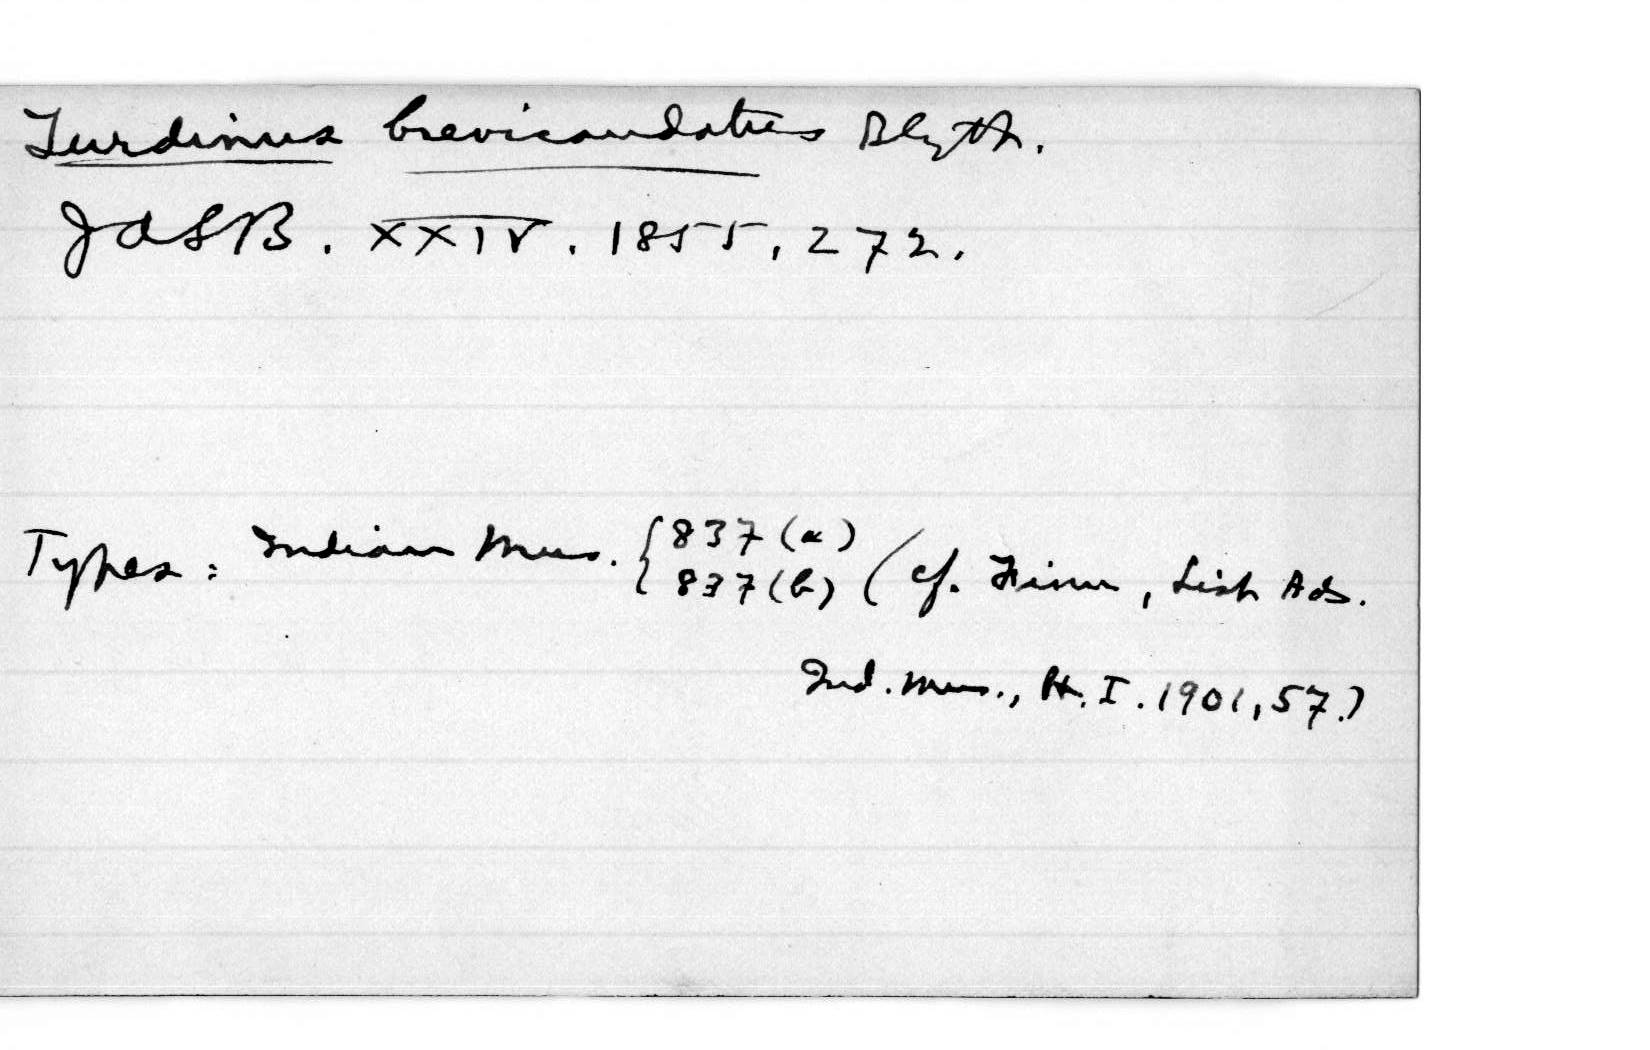 Turdinus brevicaudatus Blyth.
JASB. XXIV. 1855, 272.
Types: Indian Mus. { 837 (a) 837 (b) (cf. Finn, List Bds.
Ind. Mus., Pt. I. 1901, 57.)